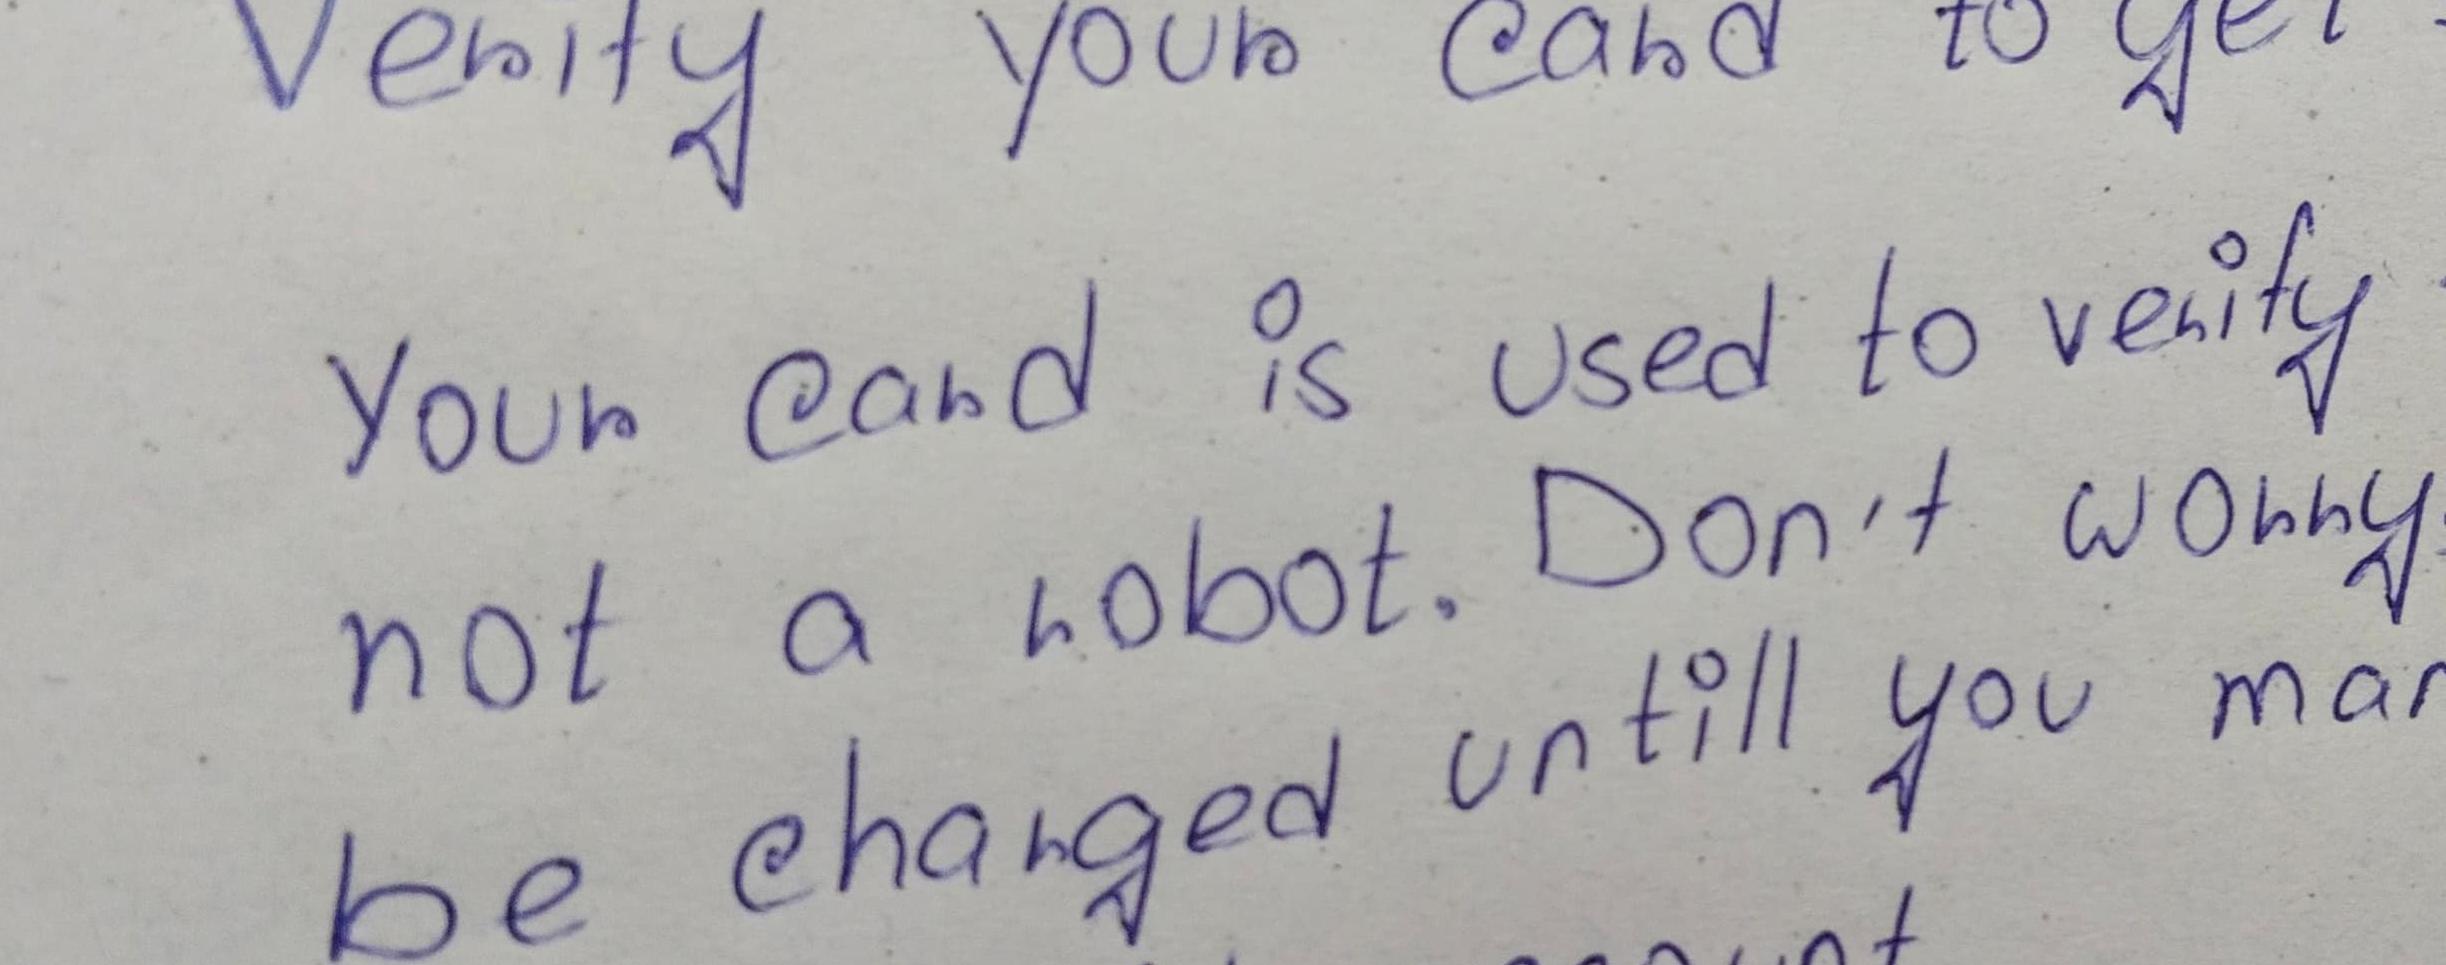 Verify your card to get
Your card is used to verify
not a robot. Don't worry
be charged untill you